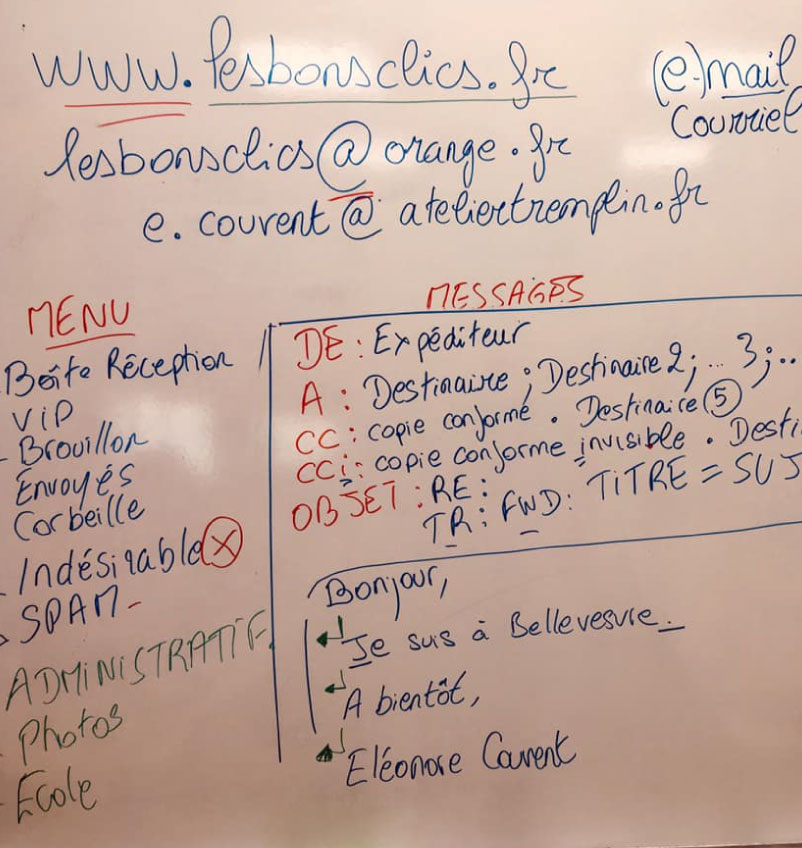 www.lesbonsclics.fr
(e-)mail
Courriel
lesbonsclics@orange.fr
e.couvent@ateliertremplin.fr
MENU
Boîte Réception
ViP
- Brouillon
Envoyés
Corbeille
- Indésirable X
> SPAM -
ADMINISTRATIF
- Photos
- École
MESSAGES
DE : Expéditeur
A : Destinaire ; Destinaire 2 ; ... 3 ; ..
CC : copie conforme . Destinaire 5
CCi : copie conforme invisible . Desti
OBJET : RE :
TR : FWD : TITRE = SUJ
Bonjour,
Je suis à Bellevesvre.
A bientôt,
Eléonore Couvent